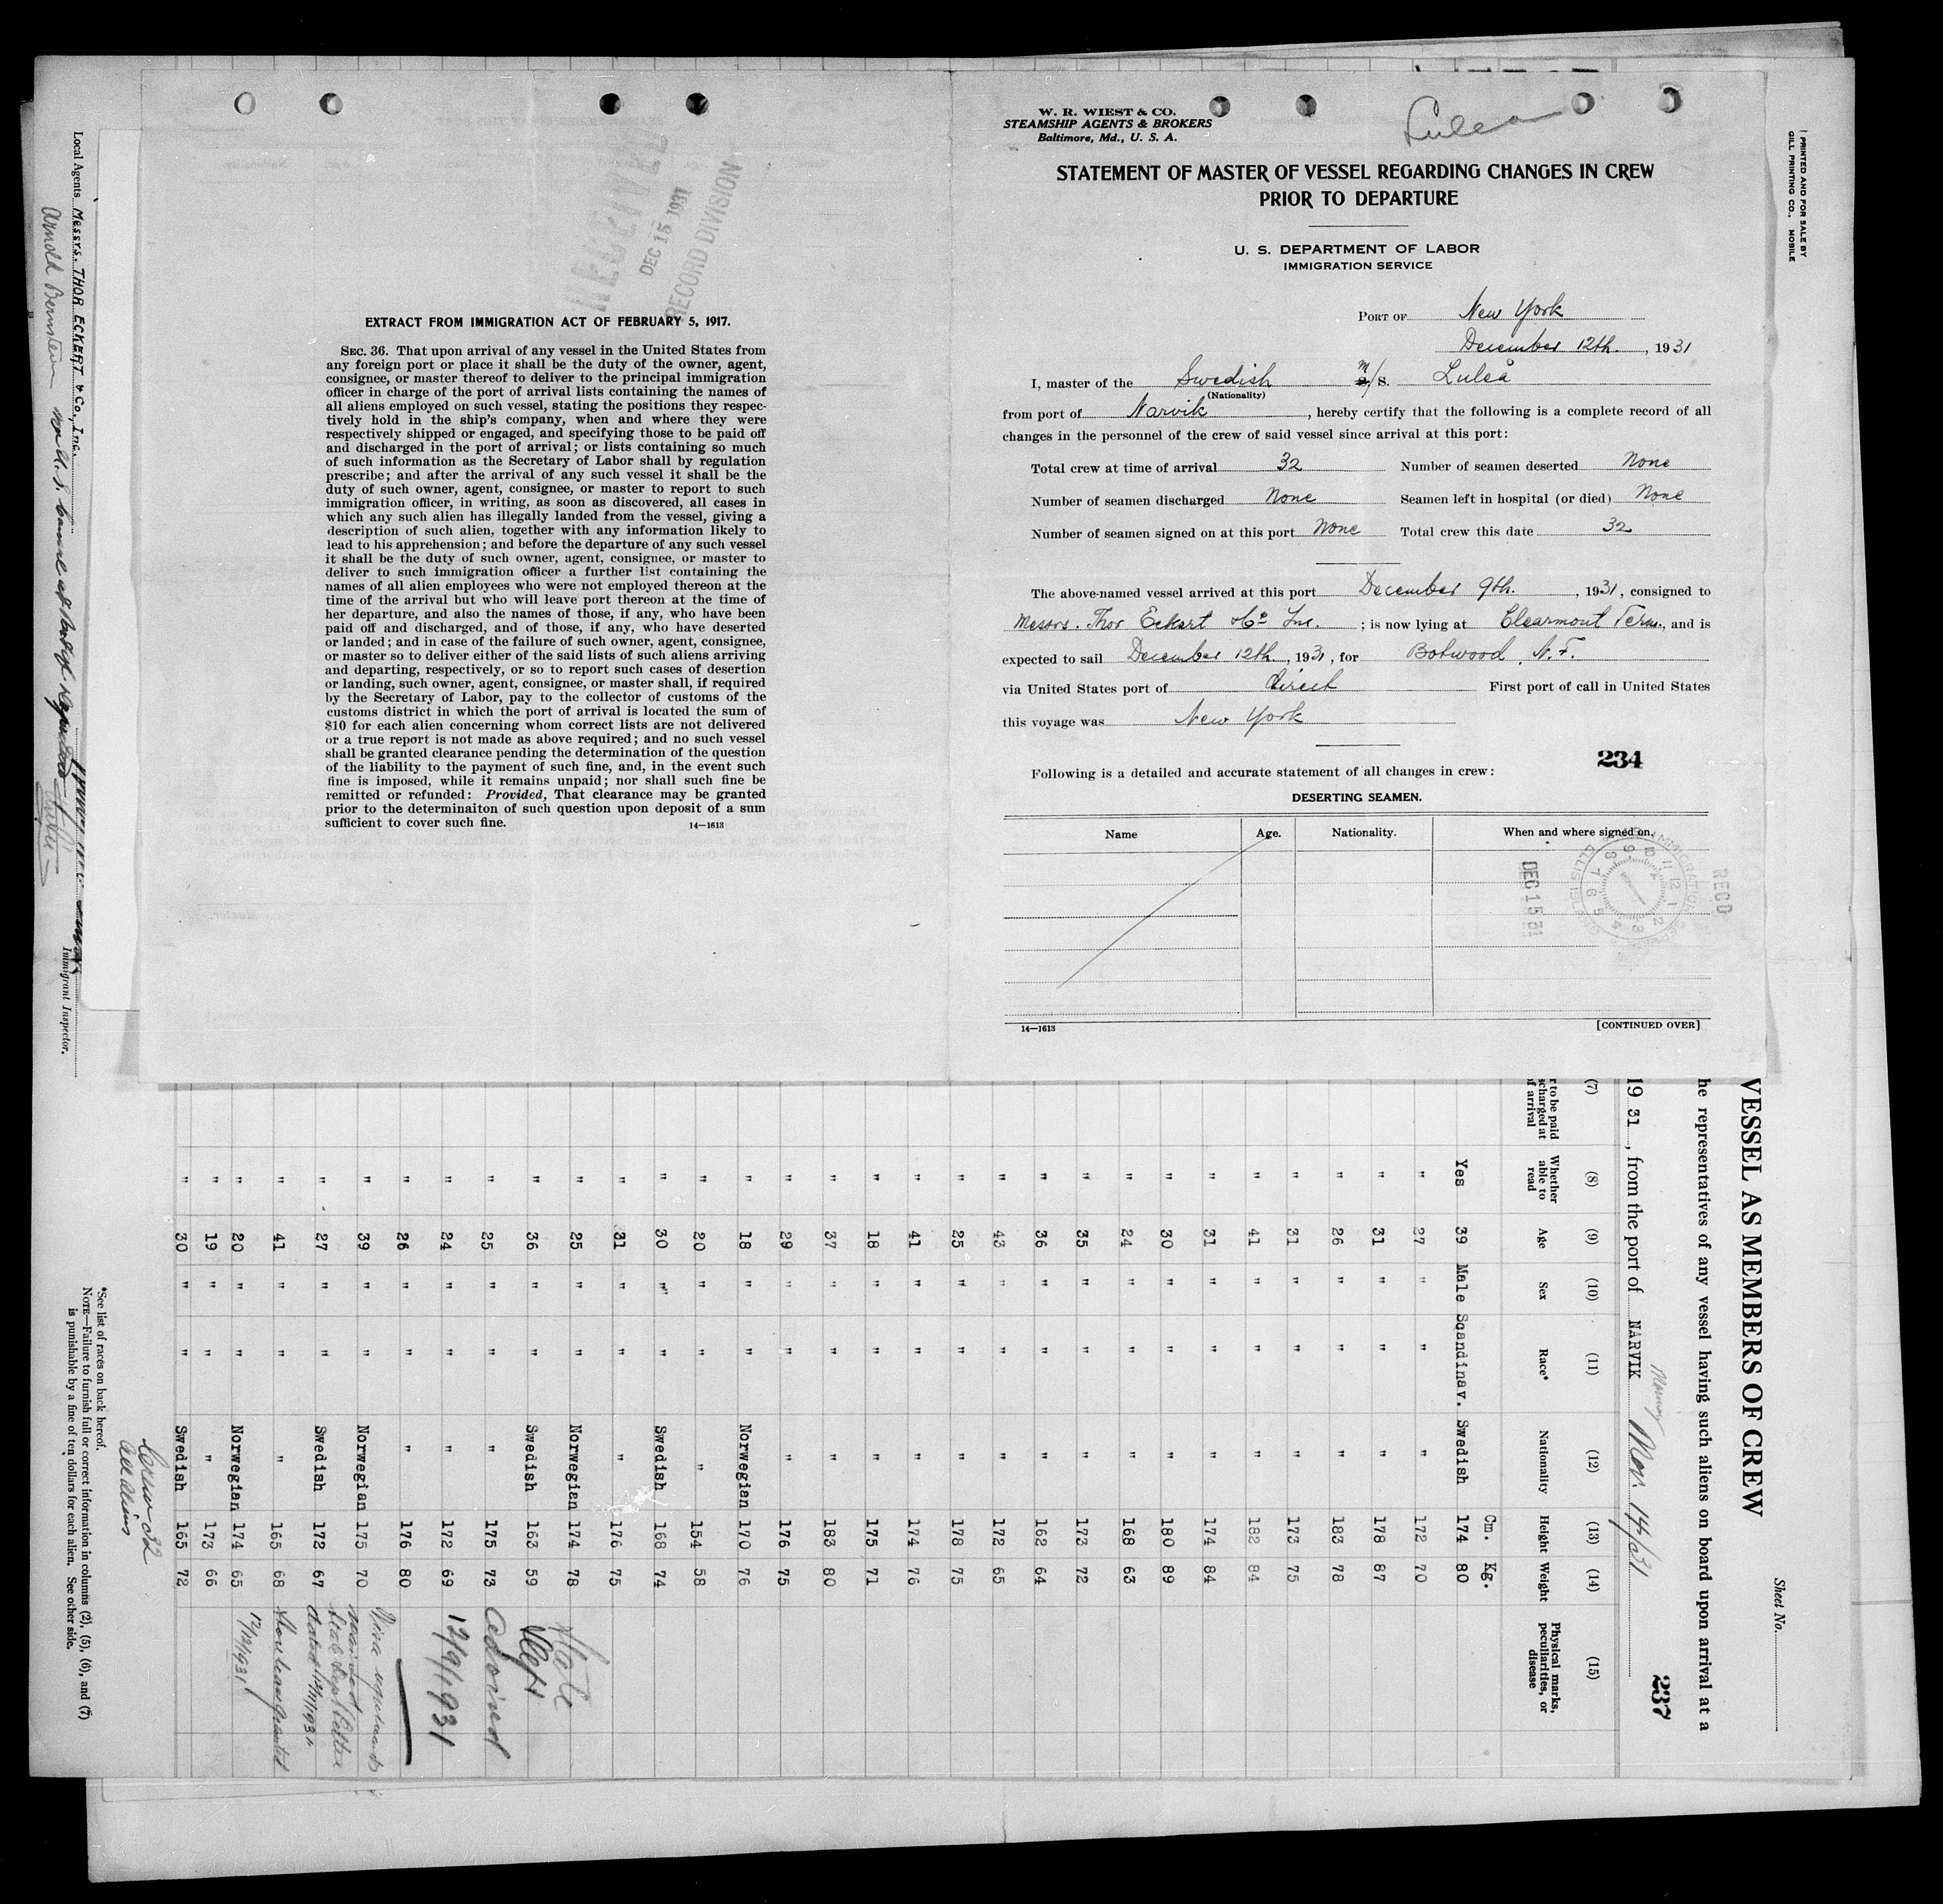 W. R. WIEST & CO.
STEAMSHIP AGENTS & BROKERS
Baltimore, Md., U. S. A.
Lulea
STATEMENT OF MASTER OF VESSEL REGARDING CHANGES IN CREW
PRIOR TO DEPARTURE
U. S. DEPARTMENT OF LABOR
IMMIGRATION SERVICE
PORT OF New York
December 12th. , 1931
I, master of the Swedish M/S. Luleå
(Nationality)
from port of Narvik , hereby certify that the following is a complete record of all
changes in the personnel of the crew of said vessel since arrival at this port:
Total crew at time of arrival 32 Number of seamen deserted None
Number of seamen discharged None Seamen left in hospital (or died) None
Number of seamen signed on at this port None Total crew this date 32
The above-named vessel arrived at this port December 9th. , 1931, consigned to
Messrs. Thor Eckert & Co Inc. ; is now lying at Clearmont Term., and is
expected to sail December 12th , 1931, for Botwood, N.F.
via United States port of direct First port of call in United States
this voyage was New York
234
Following is a detailed and accurate statement of all changes in crew:
DESERTING SEAMEN.
Name Age. Nationality. When and where signed on.
DEC 15 31
RECD
14—1613 [CONTINUED OVER]
PRINTED AND FOR SALE BY
GILL PRINTING CO., MOBILE
RECEIVED
DEC 15 1931
RECORD DIVISION
EXTRACT FROM IMMIGRATION ACT OF FEBRUARY 5, 1917.
SEC. 36. That upon arrival of any vessel in the United States from
any foreign port or place it shall be the duty of the owner, agent,
consignee, or master thereof to deliver to the principal immigration
officer in charge of the port of arrival lists containing the names of
all aliens employed on such vessel, stating the positions they respec-
tively hold in the ship's company, when and where they were
respectively shipped or engaged, and specifying those to be paid off
and discharged in the port of arrival; or lists containing so much
of such information as the Secretary of Labor shall by regulation
prescribe; and after the arrival of any such vessel it shall be the
duty of such owner, agent, consignee, or master to report to such
immigration officer, in writing, as soon as discovered, all cases in
which any such alien has illegally landed from the vessel, giving a
description of such alien, together with any information likely to
lead to his apprehension; and before the departure of any such vessel
it shall be the duty of such owner, agent, consignee, or master to
deliver to such immigration officer a further list containing the
names of all alien employees who were not employed thereon at the
time of the arrival but who will leave port thereon at the time of
her departure, and also the names of those, if any, who have been
paid off and discharged, and of those, if any, who have deserted
or landed; and in case of the failure of such owner, agent, consignee,
or master so to deliver either of the said lists of such aliens arriving
and departing, respectively, or so to report such cases of desertion
or landing, such owner, agent, consignee, or master shall, if required
by the Secretary of Labor, pay to the collector of customs of the
customs district in which the port of arrival is located the sum of
$10 for each alien concerning whom correct lists are not delivered
or a true report is not made as above required; and no such vessel
shall be granted clearance pending the determination of the question
of the liability to the payment of such fine, and, in the event such
fine is imposed, while it remains unpaid; nor shall such fine be
remitted or refunded: Provided, That clearance may be granted
prior to the determinaiton of such question upon deposit of a sum
sufficient to cover such fine.
14—1613
Sheet No.
VESSEL AS MEMBERS OF CREW
he representatives of any vessel having such aliens on board upon arrival at a
237
19 31 , from the port of NARVIK Norway Nov. 14/31
(7) (8) (9) (10) (11) (12) (13) (14) (15)
r to be paid
scharged at
of arrival
Whether
able to
read
Age Sex Race* Nationality Height Weight
Physical marks,
peculiarities, or
disease
Cm. Kg.
Yes 39 Male Sqandinav. Swedish 174 80
" 27 " " " 172 70
" 31 " " " 178 87
" 26 " " " 183 78
" 31 " " " 173 75
" 41 " " " 182 84
" 31 " " " 174 84
" 30 " " " 180 89
" 24 " " " 168 63
" 35 " " " 173 72
" 36 " " " 162 64
" 43 " " " 172 65
" 25 " " " 178 75
" 41 " " " 174 76
" 18 " " " 175 71
" 37 " " " 183 80
" 29 " " " 176 75
" 18 " " Norwegian 170 76
" 20 " " " 154 58
" 30 " " Swedish 168 74
" 31 " " " 176 75
" 25 " " Norwegian 174 78
" 36 " " Swedish 163 59
" 25 " " " 175 73
" 24 " " " 172 69
" 26 " " " 176 80
" 39 " " Norwegian 175 70
" 27 " " Swedish 172 67
" 41 " " " 165 68
" 20 " " Norwegian 174 65
" 19 " " " 173 66
" 30 " " Swedish 165 72
State
Dept
Advised
12/9/1931
Visa requirements
waived
State Dept letter
dated 12/11/1931
12/12/1931
Crew 32
all aliens
*See list of races on back hereof.
NOTE—Failure to furnish full or correct information in columns (2), (5), (6), and (7)
is punishable by a fine of ten dollars for each alien. See other side.
Local Agents Messrs. THOR ECKERT & Co., Inc.
Immigrant Inspector.
Arnold Bernstein